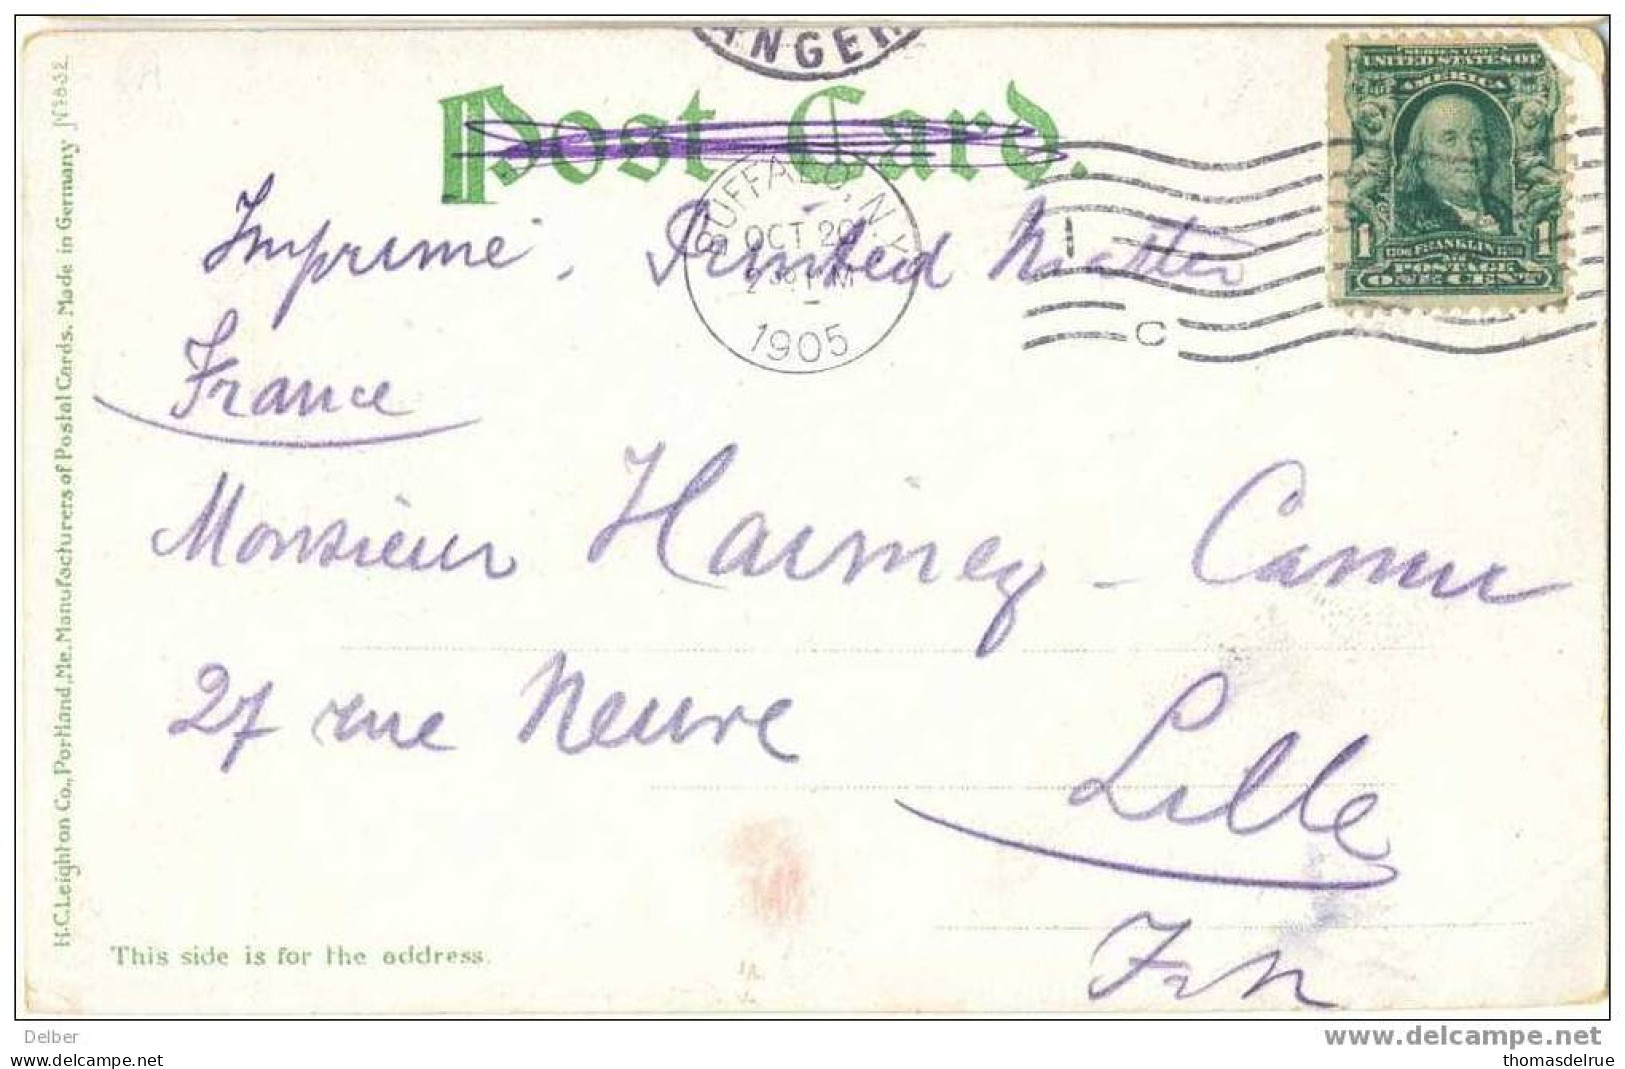 ANGER
Post Card.
SERIES 1902
UNITED STATES OF
AMERICA
1706 FRANKLIN 1790
1 1
POSTAGE
ONE CENT
BUFFALO, N.Y.
OCT 20
2 30 PM
1905
C
Imprimé. Printed Matter
France
Monsieur Haimez - Camus
27 rue Neuve
Lille
This side is for the address.
H.C.Leighton Co., Portland, Me. Manufacturers of Postal Cards. Made in Germany No 832
Delber
www.delcampe.net
(c) copyright delcampe.net
thomasdelrue